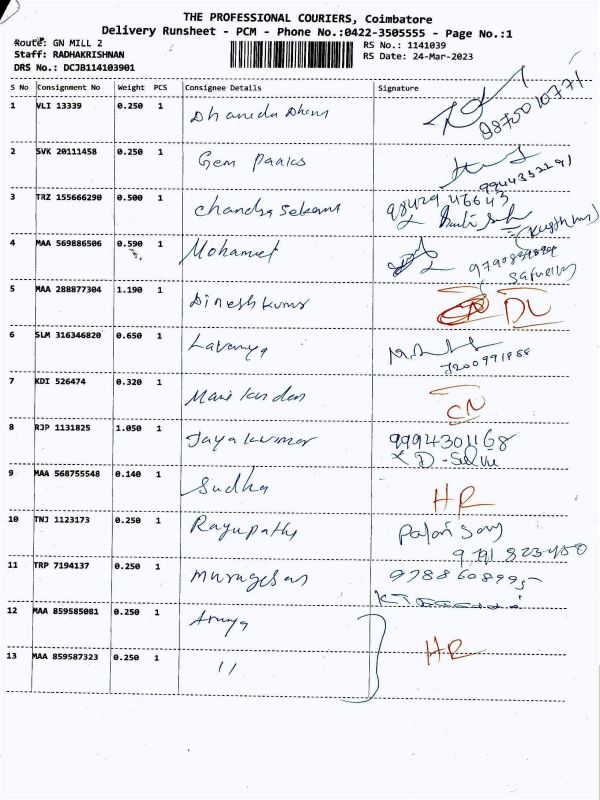 THE PROFESSIONAL COURIERS, Coimbatore
Delivery Runsheet - PCM - Phone No.:0422-3505555 - Page No.:1
Route: GN MILL 2
RS No.: 1141039
Staff: RADHAKRISHNAN
RS Date: 24-Mar-2023
DRS No.: DCJB114103901
S No Consignment No Weight PCS Consignee Details Signature
1 VLI 13339 0.250 1
2 SVK 20111458 0.250 1 Gem
9944332191
3 TRZ 155666290 0.500 1 Chandra Sekaran 98429 46643
4 MAA 569886506 0.590 1 Mohamed
5 MAA 288877304 1.190 1 Dinesh kumar DL
6 SLM 316346820 0.650 1 Lavanya
7200991858
7 KDI 526474 0.320 1 Mani kandan CN
8 RJP 1131825 1.050 1 Jayakumar 9994301168
9 MAA 568755548 0.140 1 Sudha HR
10 TNJ 1123173 0.250 1 Ragupathy
9791 823450
11 TRP 7194137 0.250 1 Murugesan 9788608995
12 MAA 859585081 0.250 1
13 MAA 859587323 0.250 1 11 HR